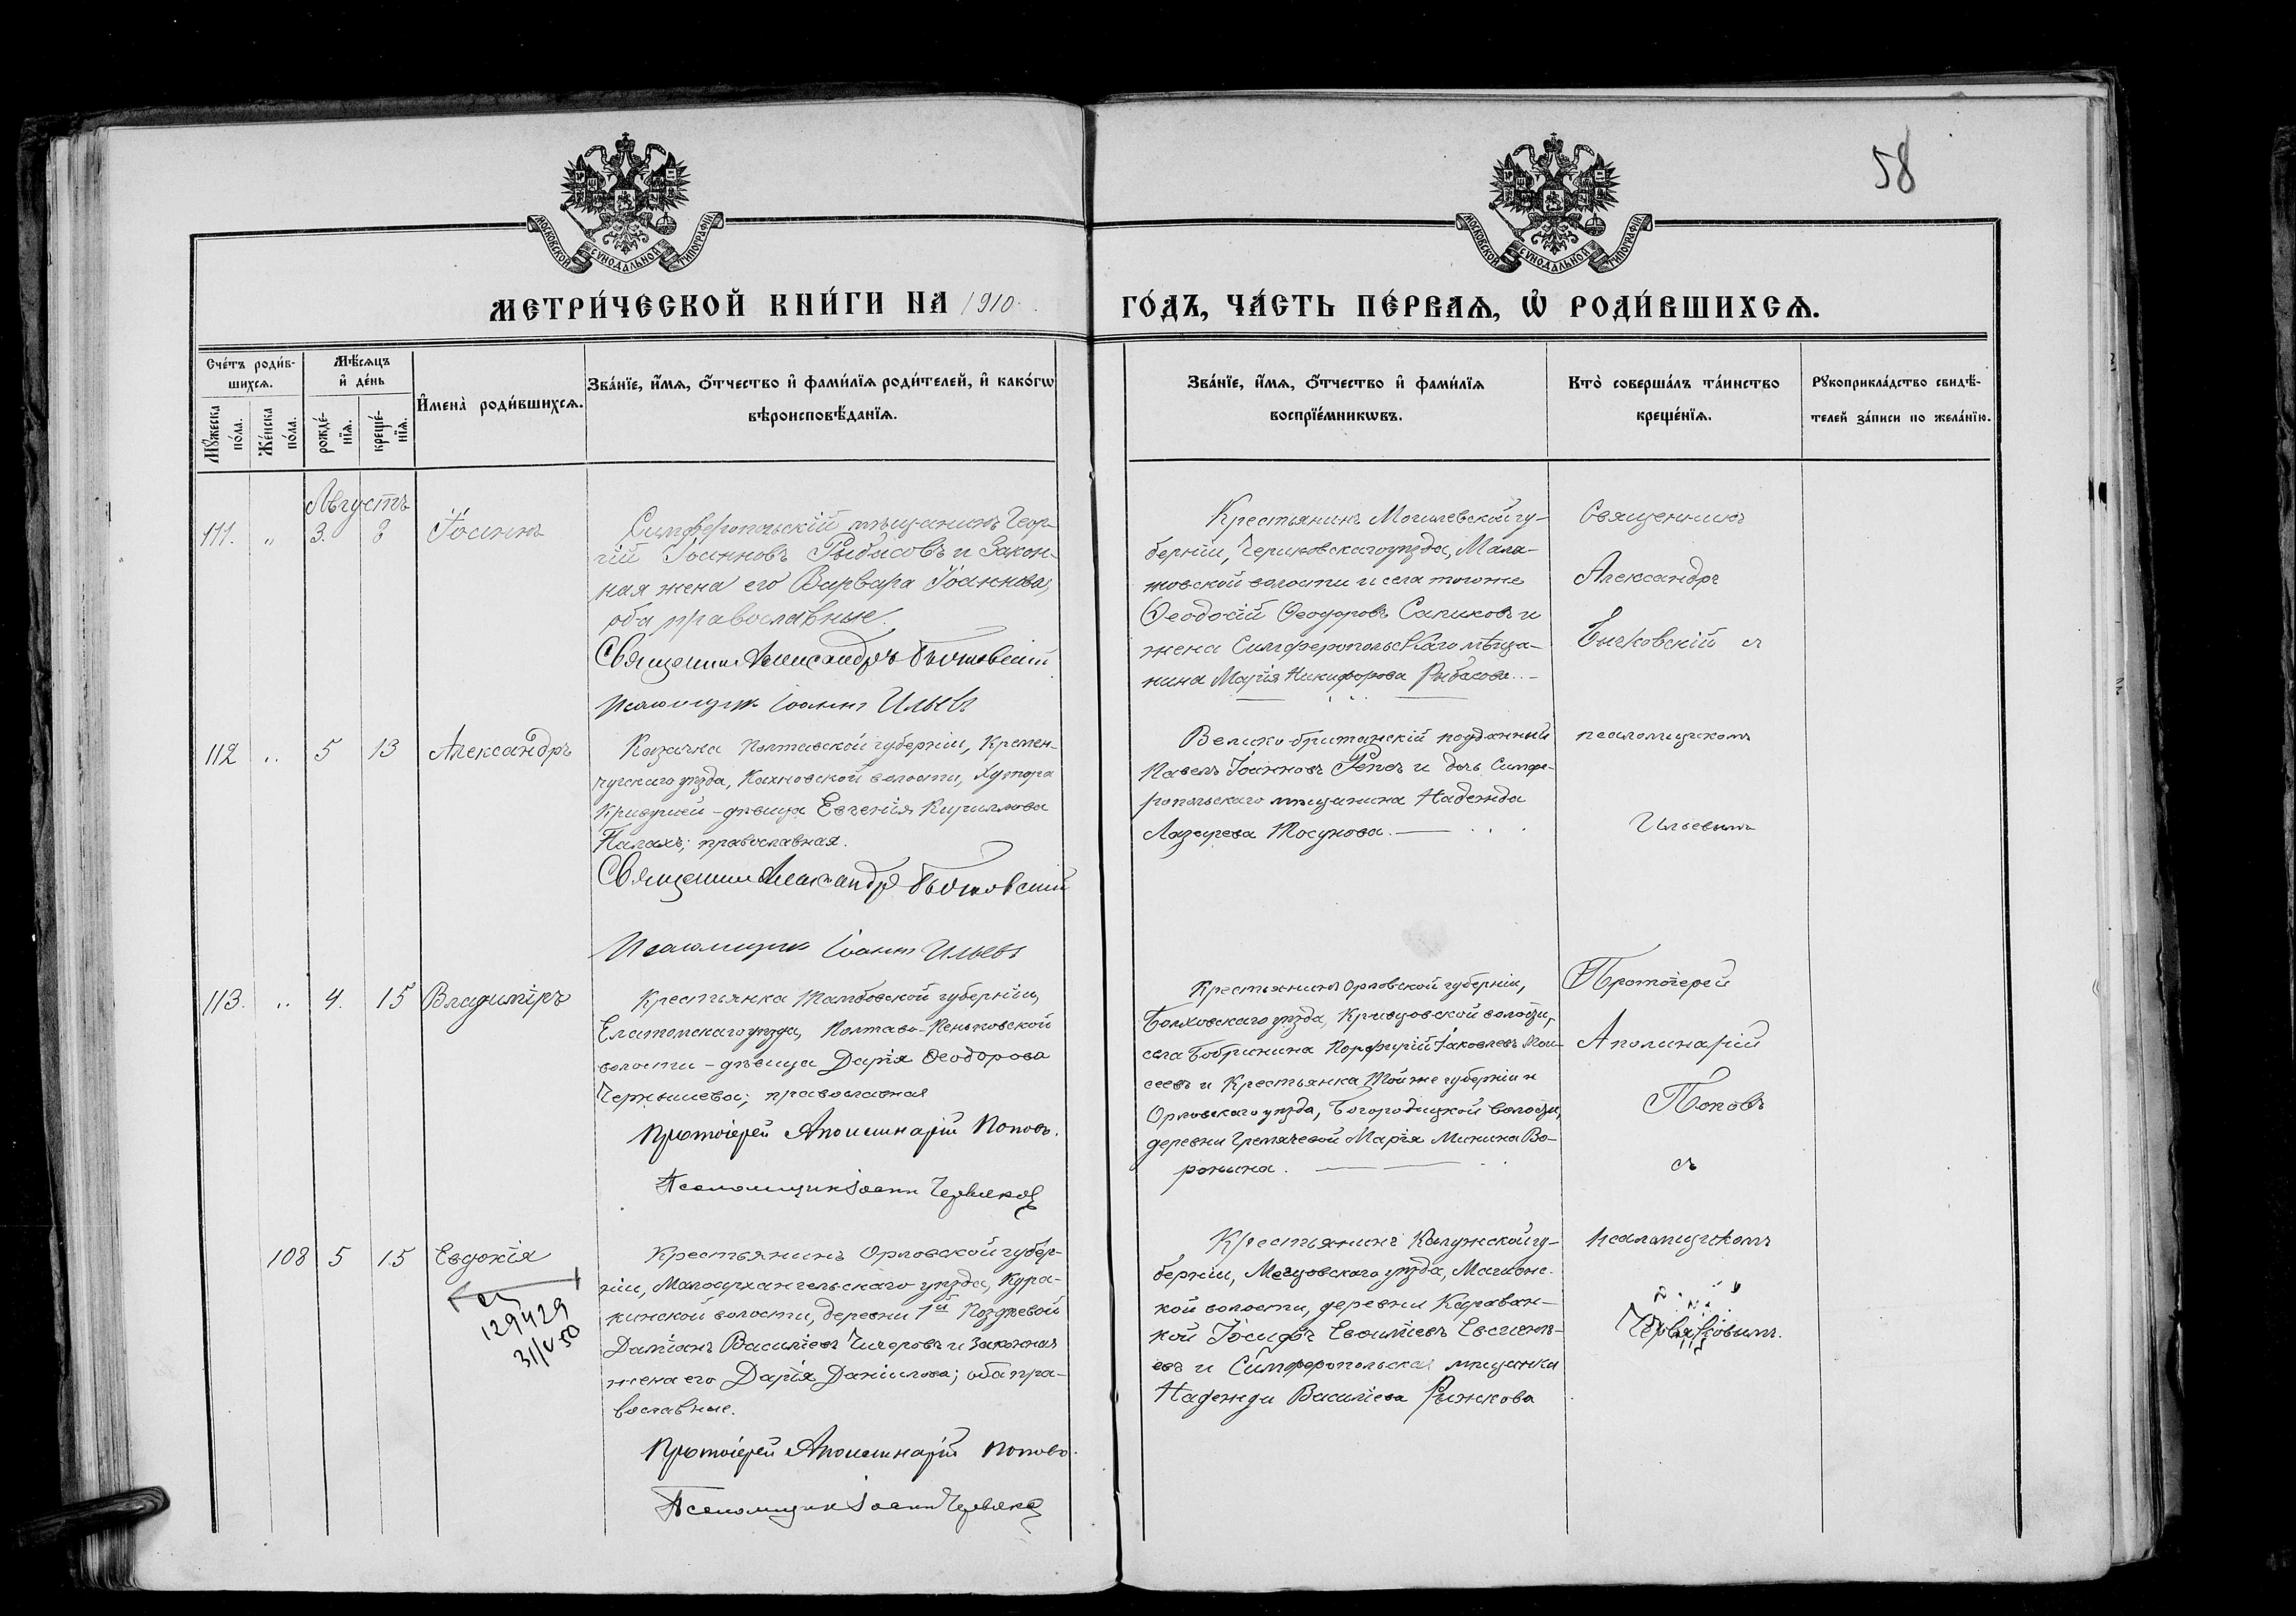 58
МОСКОВСКОЙ СѴНОДАЛЬНОЙ ТИПОГРАФІИ
МОСКОВСКОЙ СѴНОДАЛЬНОЙ ТИПОГРАФІИ
МЕТРИ́ЧЕСКОЙ КНИ́ГИ НА 1910.
ГО́ДЪ, ЧА́СТЬ ПЕ́РВАѦ, Ѡ҆ РОДИ́ВШИХСѦ.
Сче́тъ роди́в-
шихсѧ.
Мꙋ́жеска
по́ла.
Же́нска
по́ла.
Мѣ́сѧцъ
и҆ де́нь
рожде́-
нїѧ.
креще́-
нїѧ.
И҆мена̀ роди́вшихсѧ.
Зва́нїе, и҆́мѧ, ѻ҆́тчество и҆ фами́лїѧ роди́телей, и҆ како́гѡ
вѣроисповѣ́данїѧ.
Зва́нїе, и҆́мѧ, ѻ҆́тчество и҆ фами́лїѧ
воспрїе́мникѡвъ.
Кто̀ соверша́лъ та́инство
креще́нїѧ.
Рꙋкоприкла́дство свидѣ́-
телей за́писи по жела́нїю.
Августъ
111. „ 3. 8 Іоаннъ
Симферопольскій мѣщанинъ Геор-
гій Іоанновъ Рыбасовъ и закон-
ная жена его Варвара Іоаннова,
оба православные.
Священникъ Александръ Бычковскій
Псаломщикъ Іоаннъ Ильевъ
Крестьянинъ Могилевской гу-
берніи, Чериковскаго уѣзда, Маля-
товской волости и села того же
Ѳеодосій Ѳеодоровъ Сапиковъ и
жена Симферопольскаго мѣща-
нина Марія Никифорова Рыбасова. —
Священникъ
Александръ
Бычковскій съ
112 „ 5 13 Александръ
Казачка Полтавской губерніи, Кремен-
чугскаго уѣзда, Кахновской волости, хутора
Кривушей - дѣвица Евгенія Кириллова
Палахъ; православная.
Священникъ Александръ Бычковскій
Псаломщикъ Іоаннъ Ильевъ
Велико-британскій подданный
Павелъ Іоанновъ и дочь Симфе-
ропольскаго мѣщанина Надежда
Лазарева Тосунова. —
псаломщикомъ
Ильевымъ
113. „ 4. 15 Владиміръ
Крестьянка Тамбовской губерніи,
Елатомскаго уѣзда, Полтево-Пеньковской
волости - дѣвица Дарія Ѳеодорова
Чернышева; православная
Протоіерей Аполинарій Поповъ.
Псаломщикъ Іоаннъ Червяковъ
Крестьянинъ Орловской губерніи,
Болховскаго уѣзда, Кривцовской волости,
села Бобринина Порфирій Іаковлевъ Мои-
сеевъ и Крестьянка той же губерніи и
Орловскаго уѣзда, Богородицкой волости,
деревни Гремячевой Марія Минина Во-
ронина. —
Протоіерей
Аполинарій
Поповъ
съ
108 5 15 Евдокія
129429
31/V 50
Крестьянинъ Орловской губер-
ніи, Малоархангельскаго уѣзда, Кура-
кинской волости, деревни 1й Поздѣевой
Даміанъ Василіевъ Чичеровъ и законная
жена его Дарія Даніилова; оба пра-
вославные.
Протоіерей Аполинарій Поповъ.
Псаломщикъ Іоаннъ Червяковъ
Крестьянинъ Калужской гу-
берніи, Мещовскаго уѣзда,
кой волости, деревни Караван-
кой Іосифъ Евѳиміевъ Евсинѣ-
евъ и Симферопольская мѣщанка
Надежда Василіева Рыжкова
псаломщикомъ
Червяковымъ.